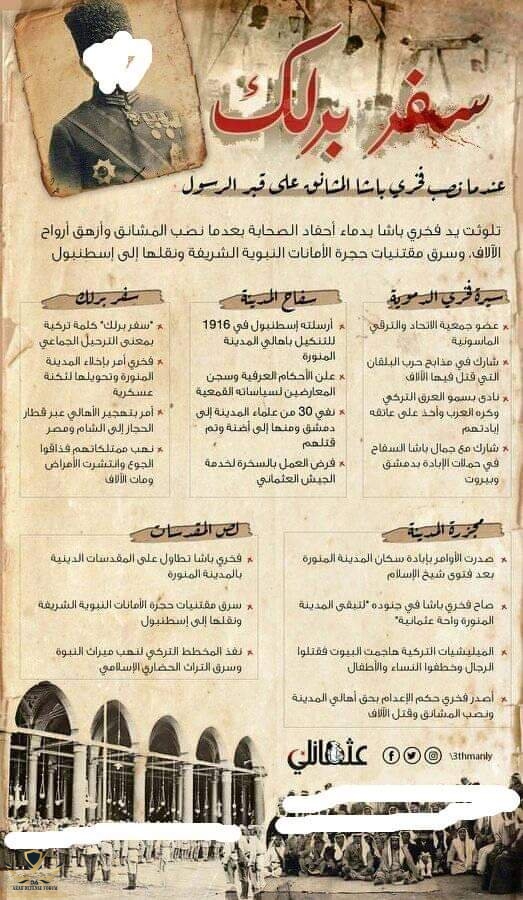 سفر برلك
عندما نصب فخري باشا المشانق على قبر الرسول
تلوثت يد فخري باشا بدماء أحفاد الصحابة بعدما نصب المشانق وأزهق أرواح
الآلاف. وسرق مقتنيات حجرة الأمانات النبوية الشريفة ونقلها إلى إسطنبول
سيرة فخري الدموية
عضو جمعية الاتحاد والترقي
الماسونية
شارك في مذابح حرب البلقان
التي قتل فيها الآلاف
نادى بسمو العرق التركي
وكره العرب وأخذ على عاتقه
إبادتهم
شارك مع جمال باشا السفاح
في حملات الإبادة بدمشق
وبيروت
سفاح المدينة
أرسلته إسطنبول في 1916
للتنكيل باهالي المدينة
المنورة
علن الأحكام العرفية وسجن
المعارضين لسياساته القمعية
نفي 30 من علماء المدينة إلى
دمشق ومنها إلى أضنة وتم
قتلهم
فرض العمل بالسخرة لخدمة
الجيش العثماني
سفر برلك
"سفر برلك" كلمة تركية
بمعنى الترحيل الجماعي
فخري أمر بإخلاء المدينة
المنورة وتحويلها لثكنة
عسكرية
أمر بتهجير الأهالي عبر قطار
الحجاز إلى الشام ومصر
نهب ممتلكاتهم فذاقوا
الجوع وانتشرت الأمراض
ومات الآلاف
مجزرة المدينة
صدرت الأوامر بإبادة سكان المدينة المنورة
بعد فتوى شيخ الإسلام
صاح فخري باشا في جنوده "لتبقى المدينة
المنورة واحة عثمانية"
الميليشيات التركية هاجمت البيوت فقتلوا
الرجال وخطفوا النساء والأطفال
أصدر فخري حكم الإعدام بحق أهالي المدينة
ونصب المشانق وقتل الآلاف
لص المقدسات
فخري باشا تطاول على المقدسات الدينية
بالمدينة المنورة
سرق مقتنيات حجرة الأمانات النبوية الشريفة
ونقلها إلى إسطنبول
نفذ المخطط التركي لنهب ميراث النبوة
وسرق التراث الحضاري الإسلامي
عثمانلي
\3thmanly
ARAB DEFENSE FORUM